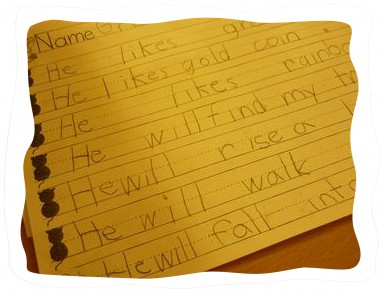 Name Gr
He likes gre
He likes gold coin
He likes rainbo
He will find my
He will rise a
He will walk
He will fall into